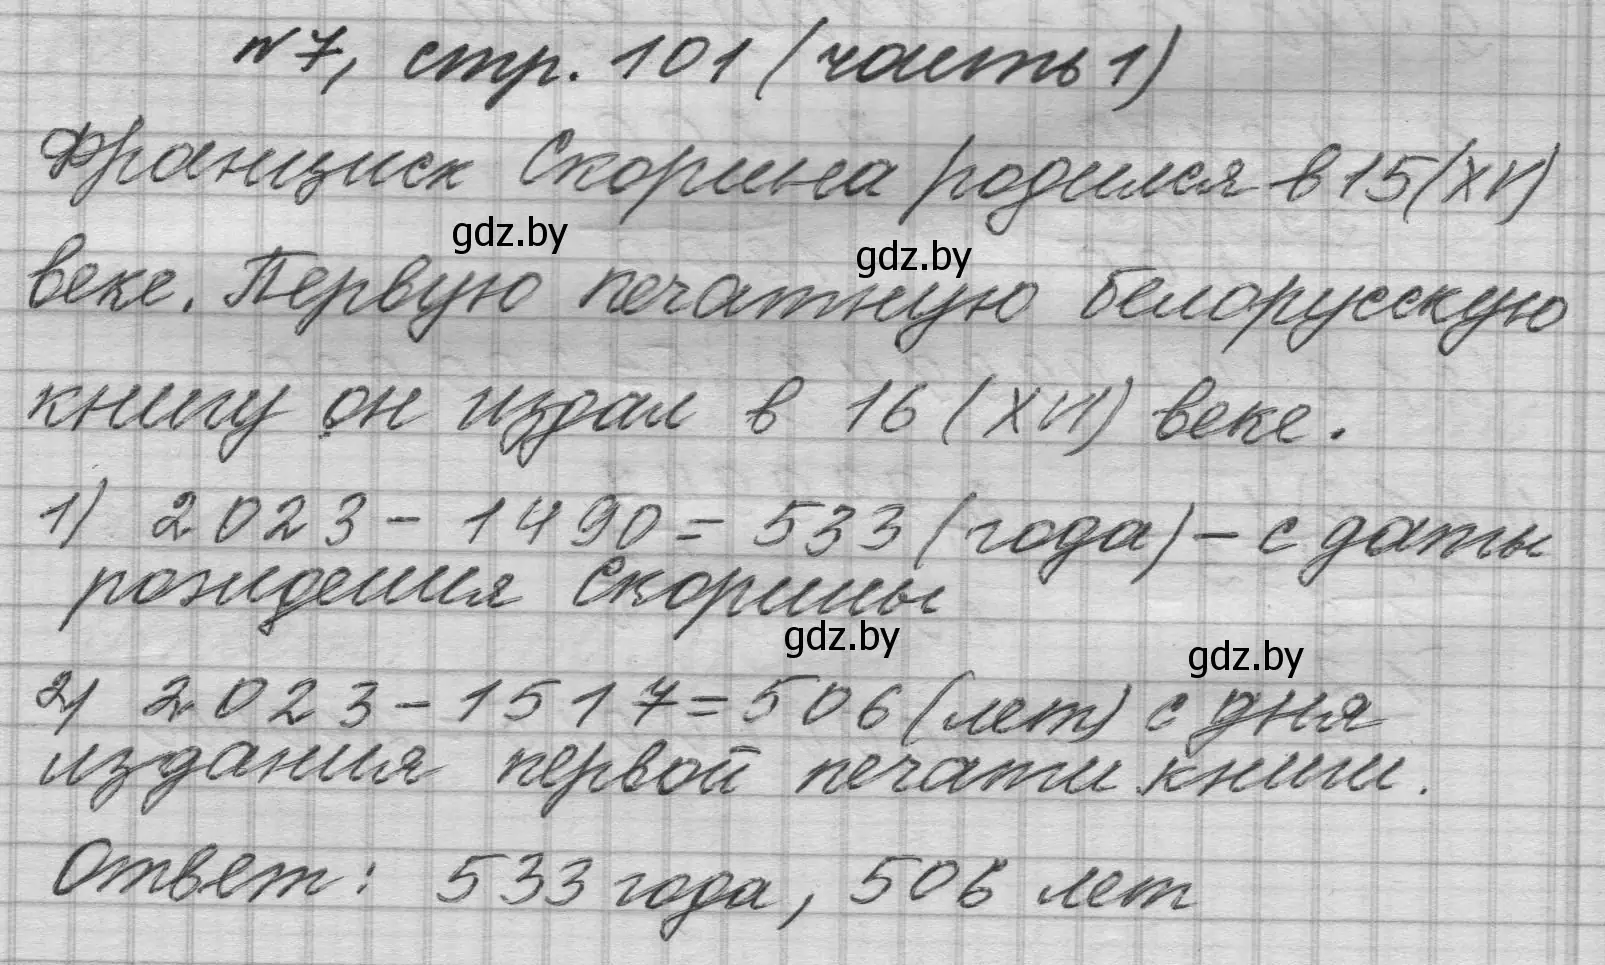 №7, стр. 101 (часть 1)
Франциск Скорина родился в 15 (XV)
gdz.by
gdz.by
веке. Первую печатную белорусскую
книгу он издал в 16 (XVI) веке.
1) 2023 - 1490 = 533 (года) - с даты
рождения Скорины
gdz.by
gdz.by
2) 2023 - 1517 = 506 (лет) с дня
издания первой печати книги.
Ответ: 533 года, 506 лет